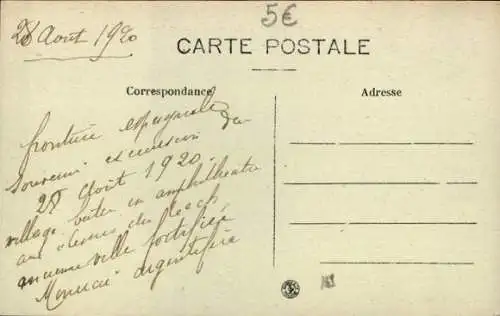 5€
28 Août 1920
CARTE POSTALE
Correspondance
Adresse
frontière espagnole
Souvenir excursion du
28 Août 1920.
village bâtie en amphithéatre
au dessus du
ancienne ville fortifiée